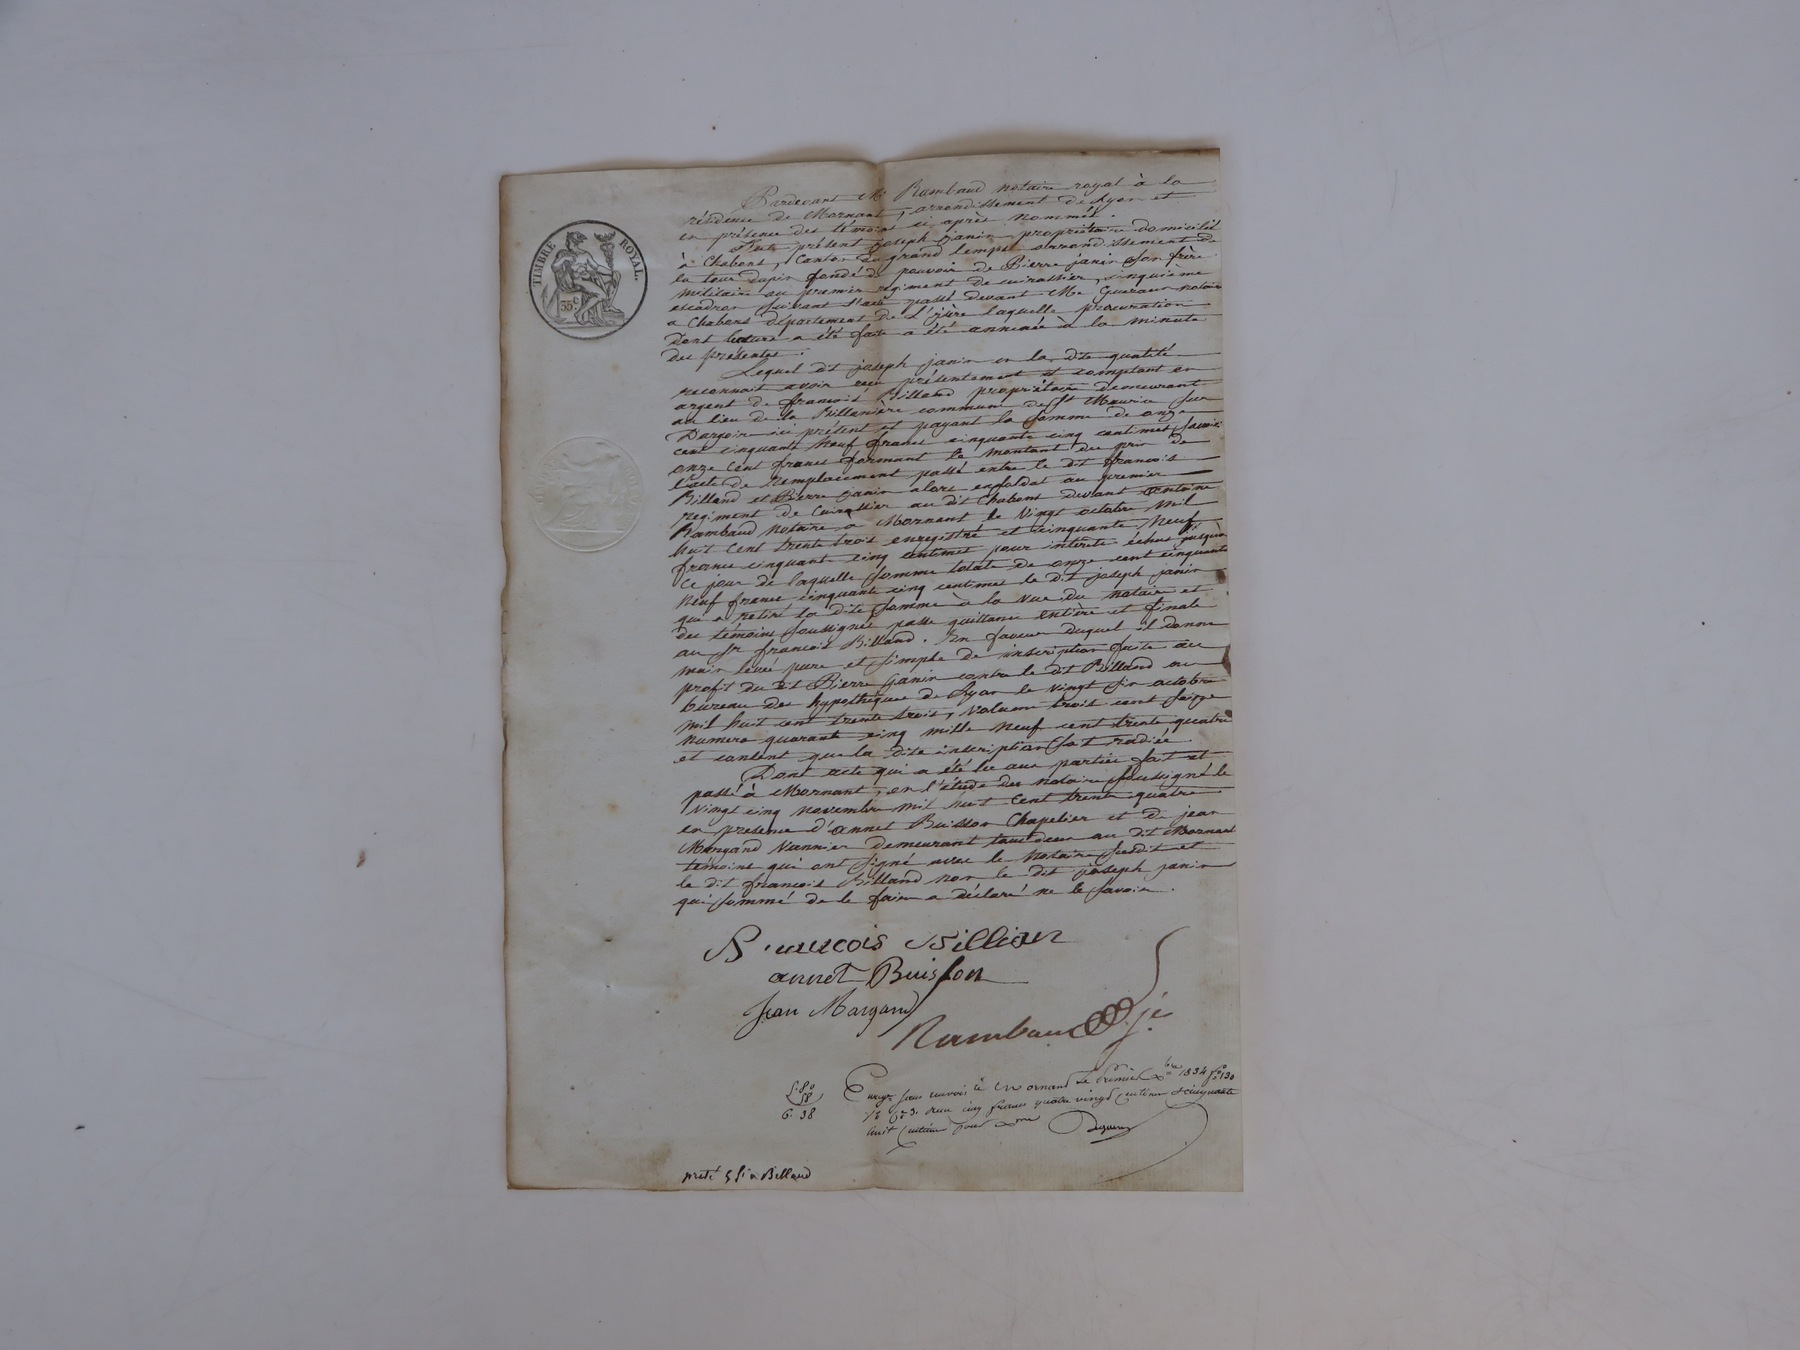 TIMBRE ROYAL.
35 c.
Pardevant Me Rambaud notaire royal à la
résidence de Mornant, arrondissement de Lyon et
en présence des témoins ci après nommés.
Fut présent joseph janin propriétaire domicilié
à Chabons, Canton du grand lemps arrondissement de
la tour dupin fondé de pouvoir de Pierre janin son frère
militaire au premier regiment de cuirassier, cinquième
escadron suivant l'acte passé devant Me notaire
a Chabons département de L'isère laquelle procuration
dont lecture a été faite a été annexée à la minute
des présentes.
Lequel dit joseph janin en la dite qualité
reconnait avoir reçu présentement et comptant en
argent de françois Billand propriétaire demeurant
au lieu de la Billanière commune de St Maurice sur
Dargoire ici présent et payant la somme de onze
cent cinquante neuf francs cinquante cinq centimes savoir
onze cent francs formant le montant du prix de
l'acte de remplacement passé entre le dit françois
Billand et Pierre janin alors soldat au premier
regiment de Cuirassier au dit Chabons devant Antoine
Rambaud notaire a Mornant le vingt octobre mil
huit cent trente trois enregistré et cinquante neuf
francs cinquante cinq centimes pour intérêts échus jusqu'à
ce jour de laquelle somme totale de onze cent cinquante
neuf francs cinquante cinq centimes le dit joseph janin
qui a retiré la dite somme à la vue du notaire et
des témoins soussignés passe quittance entière et finale
au sr françois Billand. En faveur duquel il donne
main levée pure et simple de inscription faite au
profit du dit Pierre janin contre le dit Billand au
bureau des hypothèques de Lyon le vingt six octobre
mil huit cent trente trois, volume trois cent seize
numero quarante cinq mille neuf cent trente quatre
et consent que la dite inscription soit radiée.
Dont acte qui a été lu aux parties fait et
passé à Mornant, en l'étude du notaire soussigné le
vingt cinq novembre mil huit cent trente quatre
en présence d'annet Buisson Chapelier et de jean
Margand Vannier demeurant tout deux au dit Mornant
témoins qui ont signé avec le notaire susdit et
le dit françois Billand non le dit joseph janin
qui sommé de le faire a déclaré ne le savoir.
francois Billian
annet Buisson
Jean Margand
Rambaud
5. 80
58
6. 38
Enregr sans renvoi à Mornand le premier Xbre 1834 fo 130
Vo Reçu cinq francs quatre vingt centimes & cinquante
huit centimes pour Xme